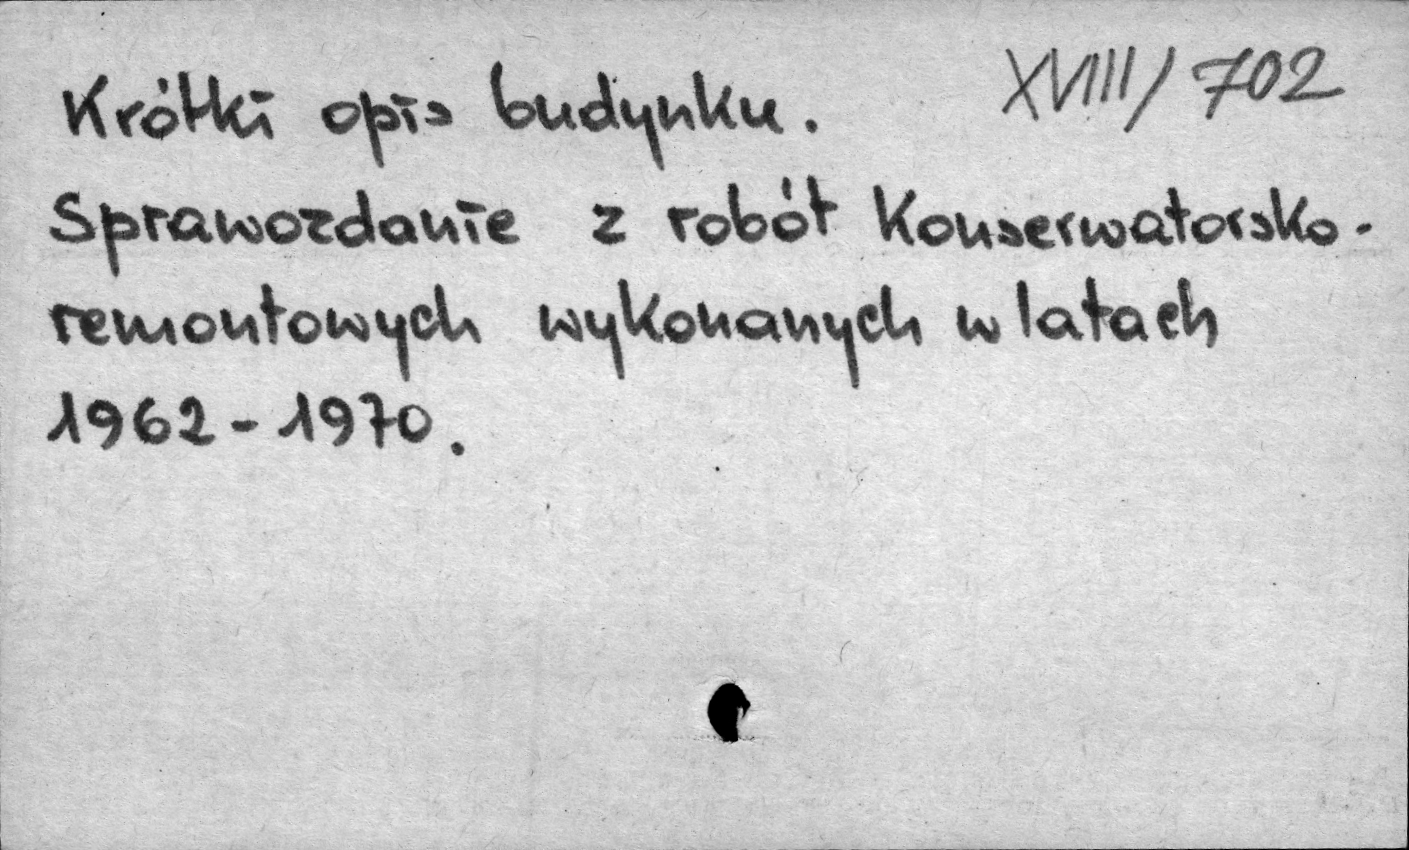 XVIII/702
Krótki opis budynku.
Sprawozdanie z robót Konserwatorsko-
remontowych wykonanych w latach
1962-1970.